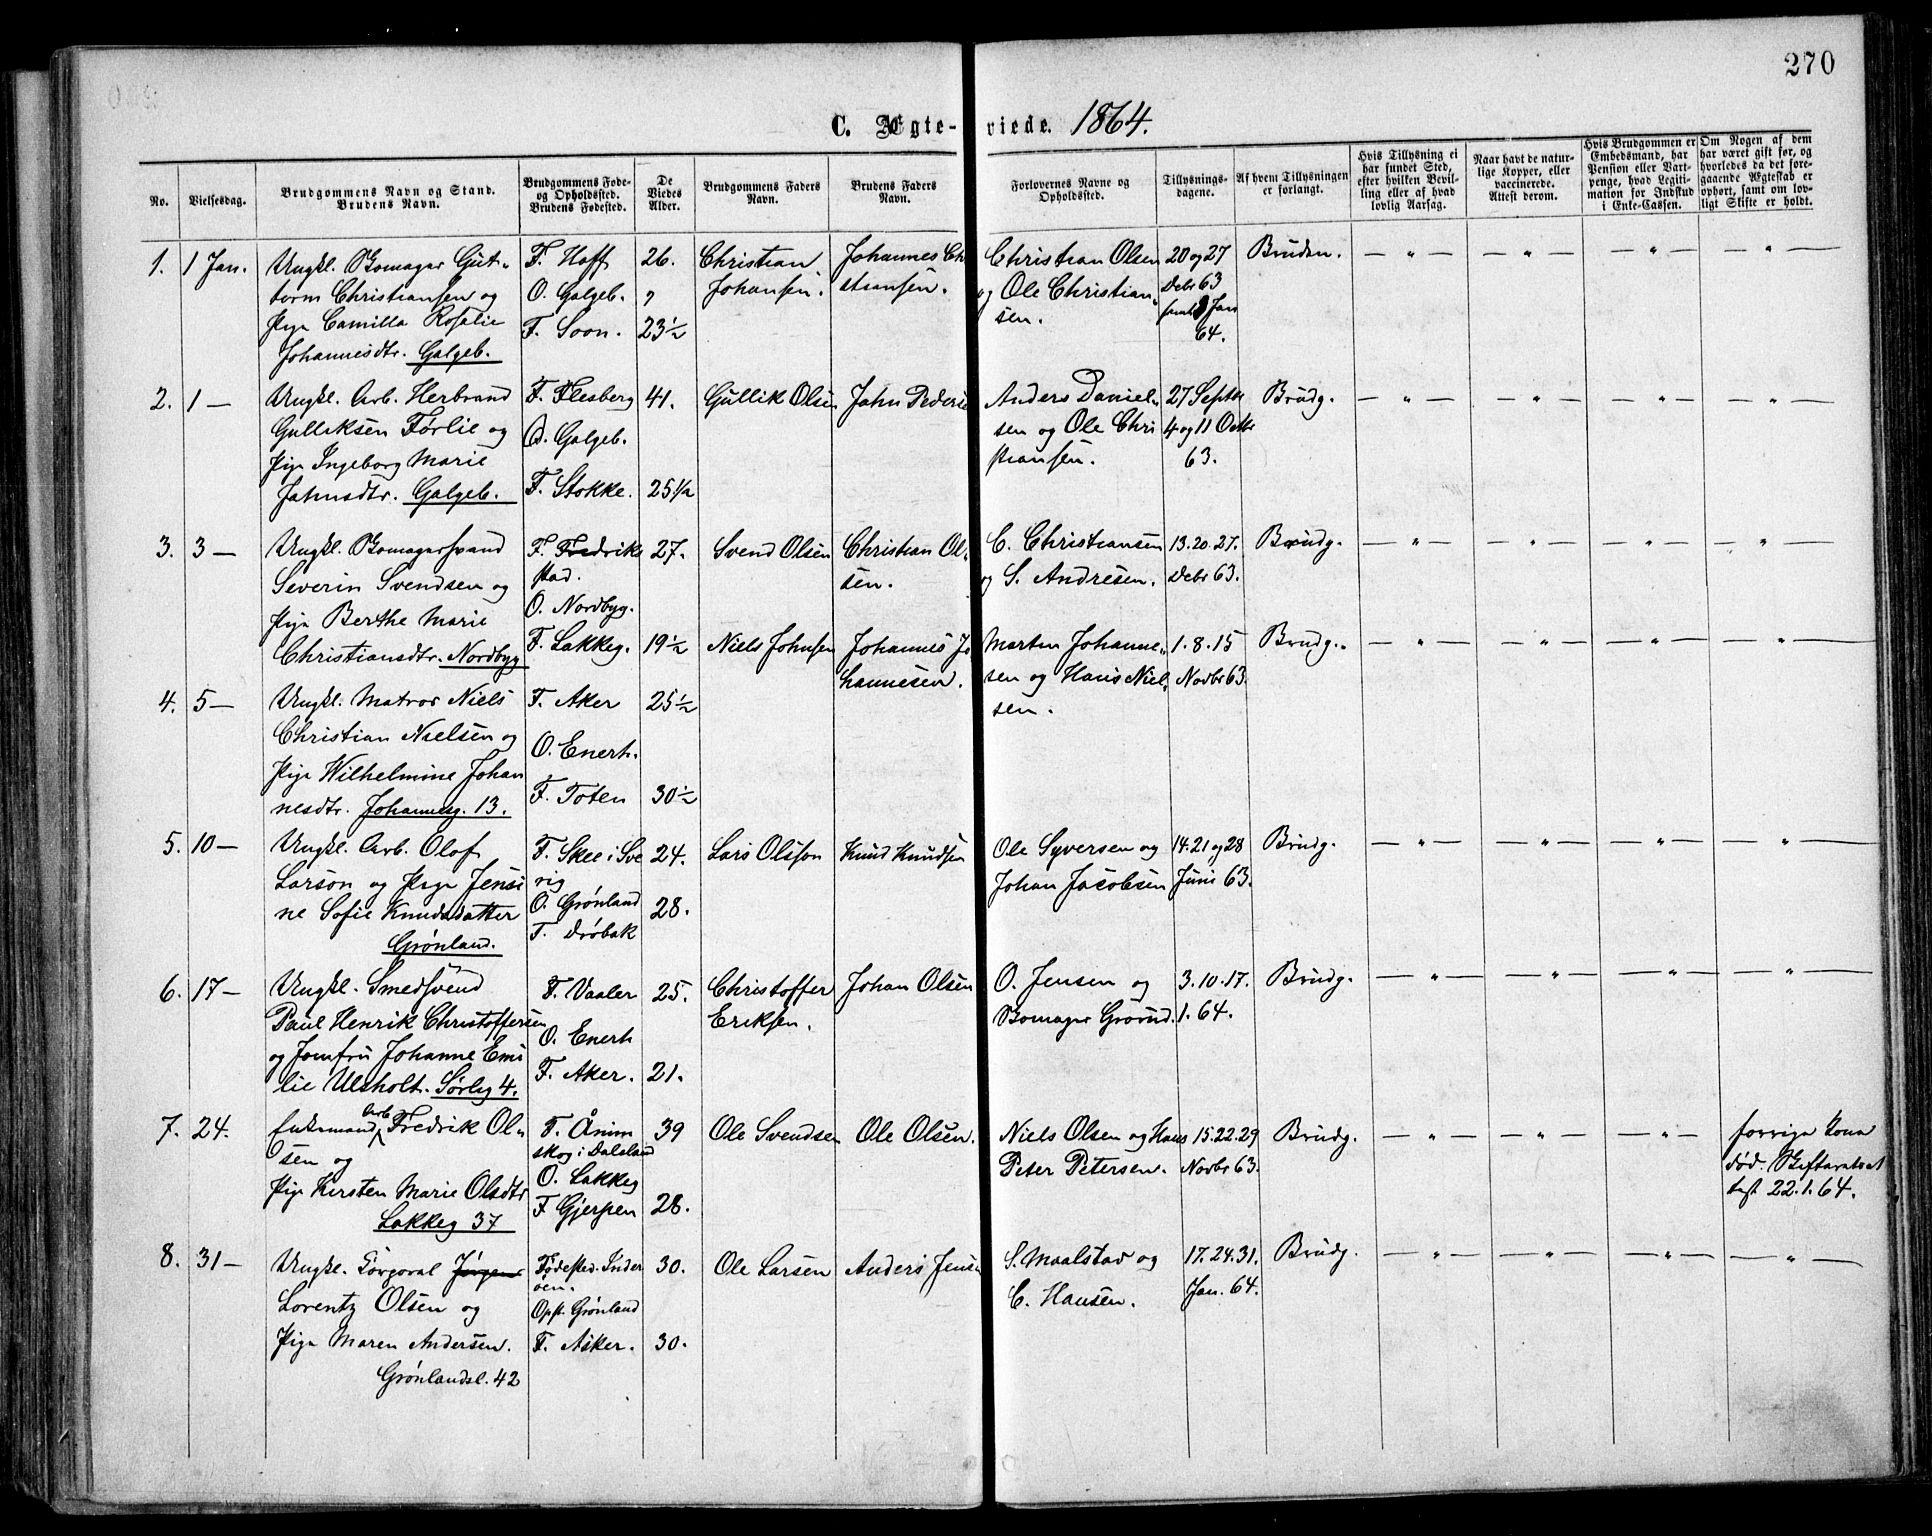 270
C. Ægte-viede. 1864.
No.
Vielsesdag.
Brudgommens Navn og Stand.
Brudens Navn.
Brudgommens Føde-
og Opholdssted.
Brudens Fødested.
De
Viedes
Alder.
Brudgommens Faders
Navn.
Brudens Faders
Navn.
Forlovernes Navne og
Opholdssted.
Tillysnings-
dagene.
Af hvem Tillysningen
er forlangt.
Hvis Tillysning ei
har fundet Sted,
efter hvilken Bevil-
ling eller af hvad
lovlig Aarsag.
Naar havt de natur-
lige Kopper, eller
vaccinerede.
Attest derom.
Hvis Brudgommen er
Embedsmand, har
Pension eller Vart-
penge, hvad Legiti-
mation for Indskud
i Enke-Cassen.
Om Nogen af dem
har været gift før, og
hvorledes da det fore-
gaaende Ægteskab er
ophørt, samt om lov-
ligt Skifte er holdt.
1. 1 Jan.
Ungkl. Bomager Gut-
torm Christiansen og
Pige Camilla Rosalie
Johannesdtr. Galgeb.
F. Hoff
O. Galgeb.
F. Soon.
26.
"
23 1/2
Christian
Johansen.
Johannes Chri
stiansen.
Christian Olsen
og Ole Christian-
sen.
20 og 27
Debr 63
samt 3 Jan
64.
Bruden.
— " — — " — — " — — " —
2. 1 —
Ungkl. Arb. Herbrand
GulliksenFørlie og
Pige Ingeborg Marie
Jahnsdtr. Galgeb.
F. Flesberg
O. Galgeb.
F. Stokke.
41.
25 1/2
Gullik Olsen
Jahn Peders
Anders Daniel-
sen og Ole Chri
stiansen.
27 Septbr
4 og 11 Octbr
63.
Brudg.
— " — — " — — " — — " —
3. 3 —
Ungkl. Bomagersvend
Severin Svendsen og
Pige Berthe Marie
Christiansdtr. Nordbyg
F. Fredrik
stad.
O. Nordbyg.
F. Lakkeg.
27.
19 1/2
Svend Olsen
Christian Ol-
sen.
C. Christiansen
og S. Andresen.
13. 20. 27.
Debr 63.
Brudg.
— " — — " — — " — — " —
4. 5 —
Ungkl. Matros Niels
Christian Nielsen og
Pige Wilhelmine Johan
nesdtr. Johannesg. 13.
F. Aker
O. Enerh.
F. Toten
25 1/2
30 1/2
Niels Johnsen
Johannes Jo
hannesen.
Marten Johanne-
sen og Hans Niel-
sen.
1. 8. 15
Novbr 63.
Brudg.
— " — — " — — " — — " —
5. 10 —
Ungkl. Arb. Olof
Larson og Pige Jensi
ne Sofie Knudsdatter
Grønland.
F. Skee i Sve
rig
O. Grønland
F. Drøbak
24.
28.
Lars Olsson
Knud Knudsen
Ole Syversen og
Johan Jacobsen
14. 21 og 28
Juni 63.
Brudg.
— " — — " — — " — — " —
6. 17 —
Ungkl. Smedsvend
Paul Henrik Christoffersen
og Jomfru Johanne Emi
lie Ulsholt. Sørlig 4.
F. Vaaler
O. Enerh
F. Aker.
25.
21.
Christoffer
Eriksen.
Johan Olsen
O. Jensen og
Bomager Grorud.
3. 10. 17.
1. 64.
Brudg.
— " — — " — — " — — " —
7. 24.
Enkemand Arb. Fredrik Ol-
sen og
Pige Kirsten Marie Olsdtr
Lakkeg 37
F. Ånim
skog i Dalsland
O. Lakkeg
F Gjerpen
39
28.
Ole Svendsen
Ole Olsen.
Niels Olsen og Hans
Peter Petersen.
15. 22. 29
Novbr 63.
Brudg.
— " — — " — — " —
forrige Kone
død. Skifteratest
22. 1. 64.
8. 31 —
Ungkl. Jørgen
Lorentz Olsen og
Pige Maren Andersen.
Grønlandsl. 42
Fødested. Inder
øen.
Opst. Grønland
F. Asker.
30.
30.
Ole Larsen
Anders Jensen
S. Maalstad og
C. Hansen.
17. 24. 31.
Jan. 64.
Brudg.
— " — — " — — " — — " —